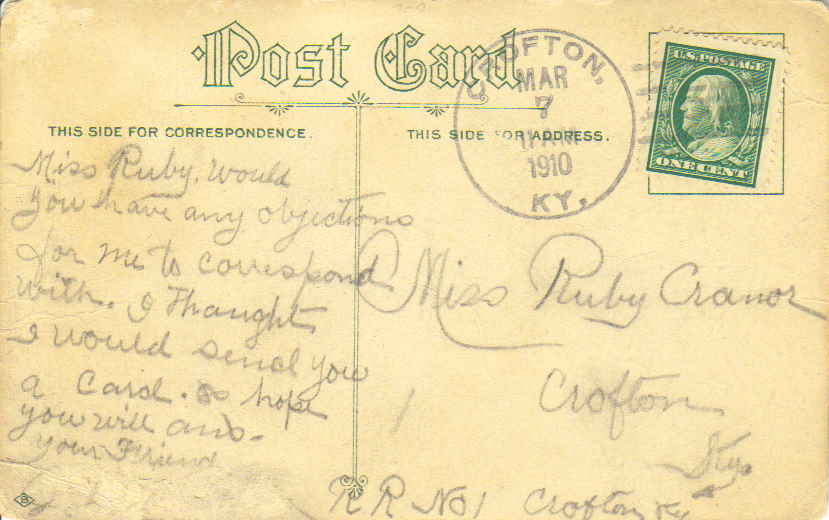 Post Card
THIS SIDE FOR CORRESPONDENCE.
THIS SIDE FOR ADDRESS.
CROFTON,
MAR
7
11 AM
1910
KY.
U.S. POSTAGE
ONE CENT
Miss Ruby. Would
you have any objections
for me to correspond
with. I Thaught
I would send you
a Card. so hope
you will ans.
your Friend
Miss Ruby Cranor
Crofton
Ky.
R R No 1 Crofton Ky